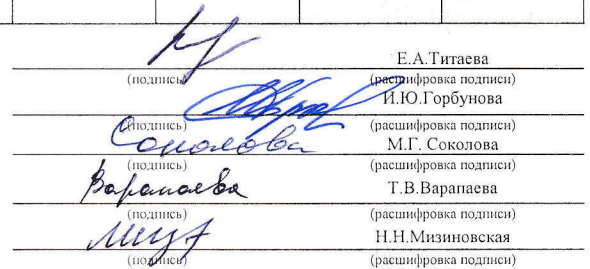 Е.А.Титаева
(подпись) (расшифровка подписи)
И.Ю.Горбунова
(подпись) (расшифровка подписи)
Соколова М.Г. Соколова
(подпись) (расшифровка подписи)
Варапаева Т.В.Варапаева
(подпись) (расшифровка подписи)
Н.Н.Мизиновская
(подпись) (расшифровка подписи)